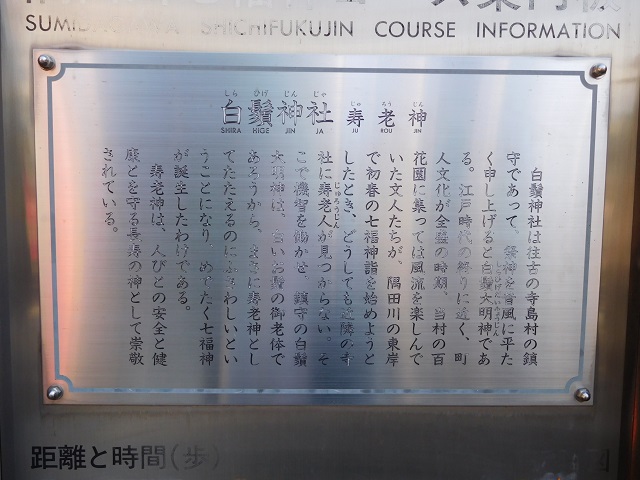 SUMID SHICHIFUKUJIN COURSE INFORMATION
しら ひげ じん じゃ じゅ ろう じん
白鬚神社 寿老神
SHIRA HIGE JIN JA JU ROU JIN
白鬚神社は往古の寺島村の鎮
守であって、祭神を昔風に平た
く申し上げると白鬚大明神であ
る。江戸時代の終りに近く、町
人文化が全盛の時期、当村の百
花園に集っては風流を楽しんで
いた文人たちが、隅田川の東岸
で初春の七福神詣を始めようと
したとき、どうしても近隣の寺
社に寿老人が見つからない。そ
こで機智を働かせ、鎮守の白鬚
大明神は、白いお鬚の御老体で
あろうから、まさに寿老神とし
てたたえるのにふさわしいとい
うことになり、めでたく七福神
が誕生したわけである。
寿老神は、人びとの安全と健
康とを守る長寿の神として崇敬
されている。
距離と時間(歩)